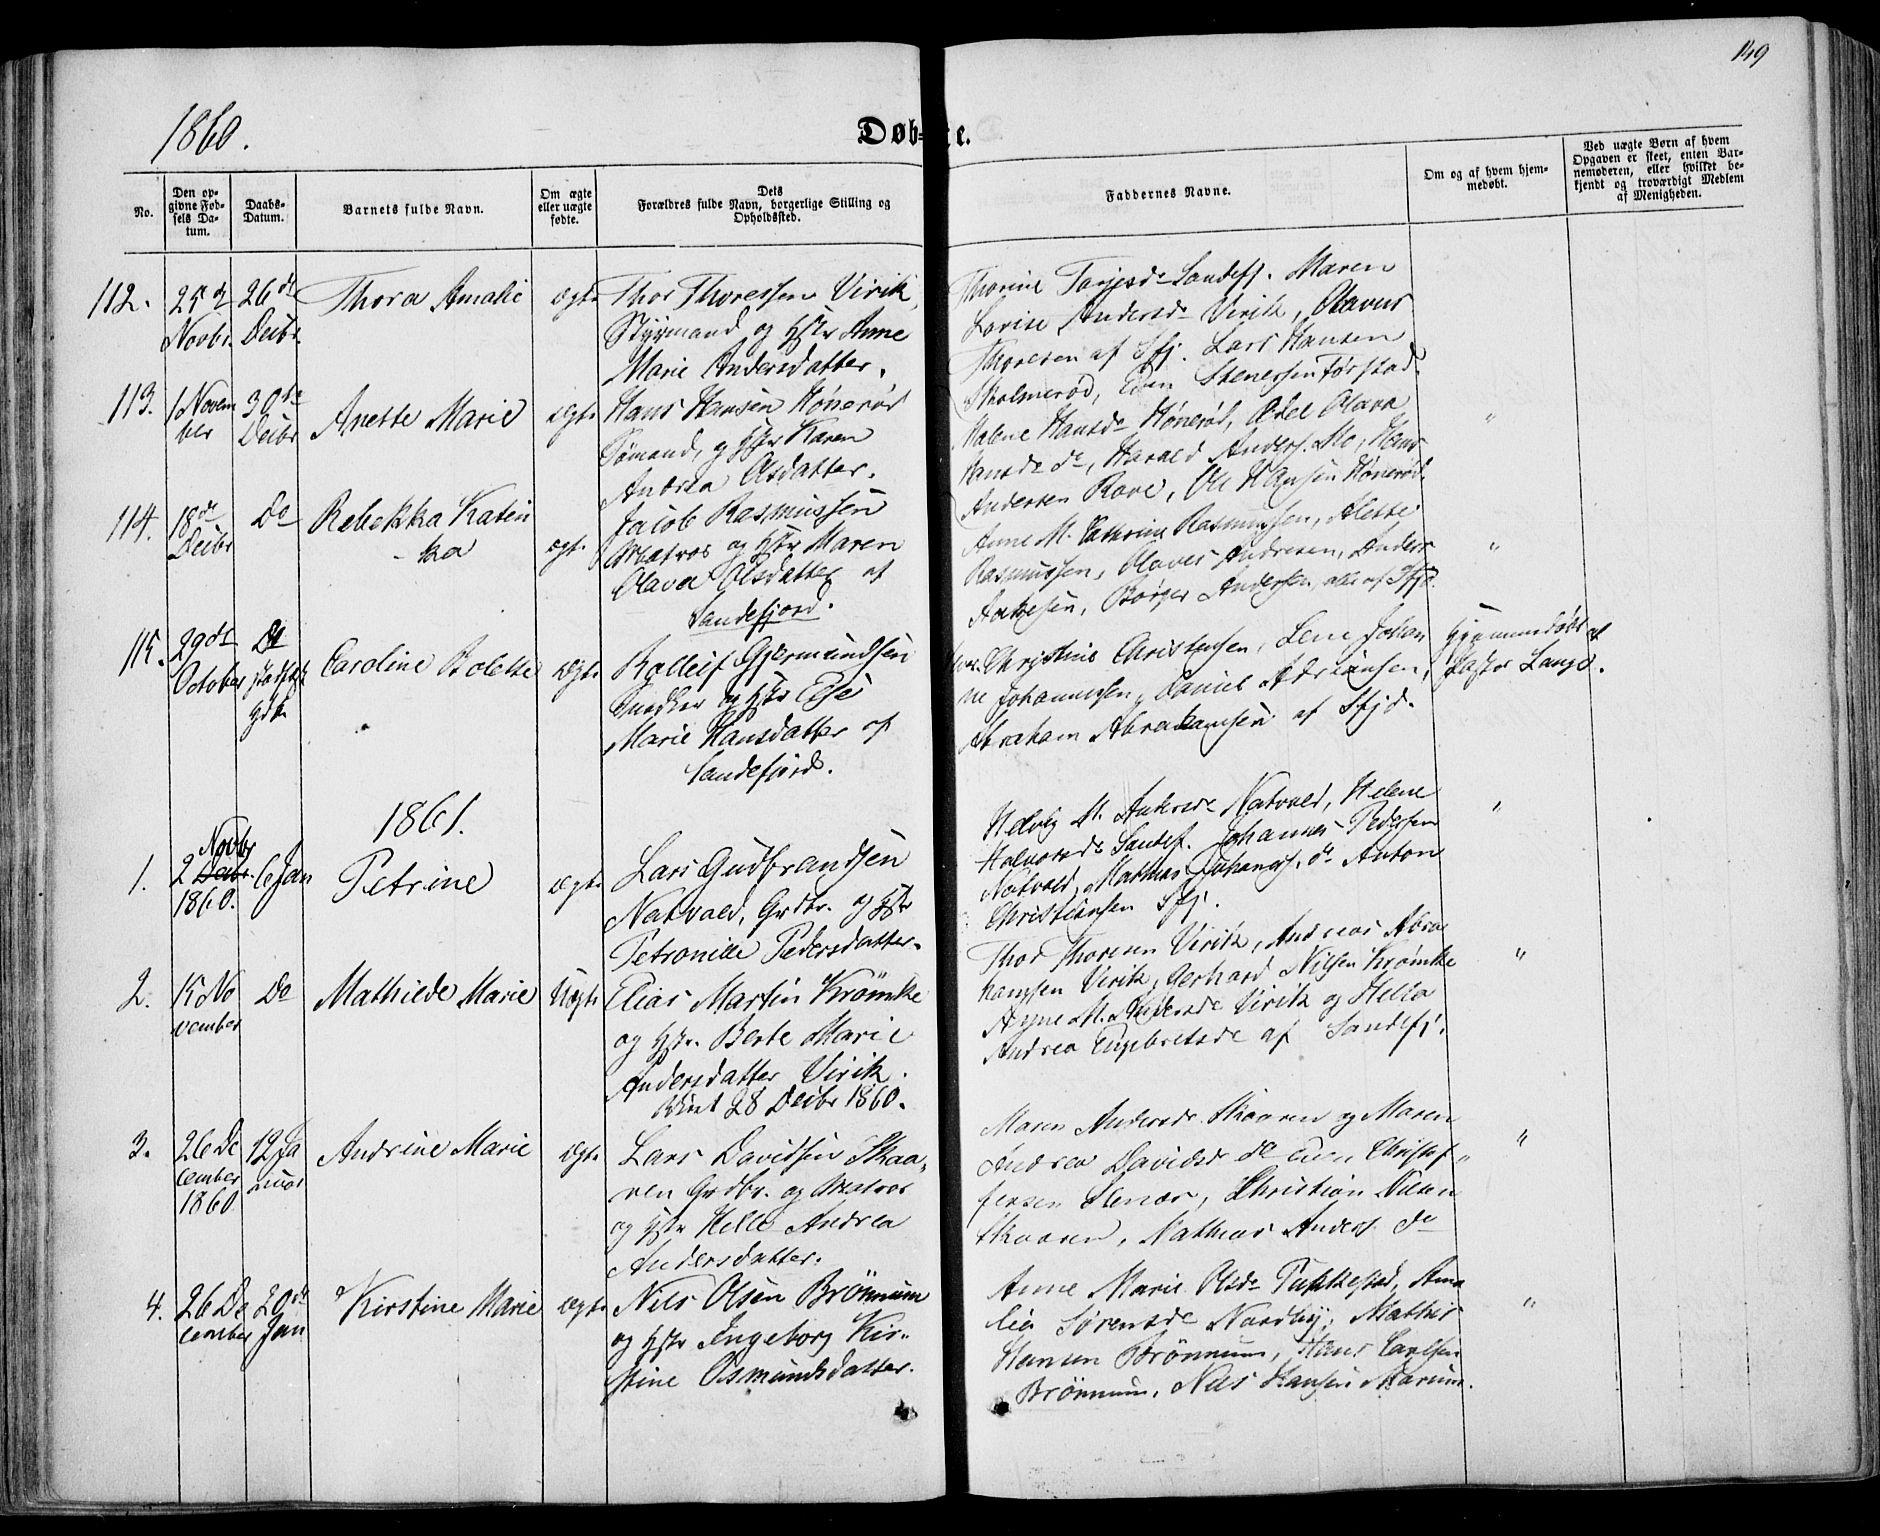 149
1860.
Døbte.
No.
Den opgivne Fødsels Datum.
Daabs-Datum.
Barnets fulde Navn.
Om ægte eller uægte fødte.
Dets Forældres fulde Navn, borgerlige Stilling og Opholdssted.
Faddernes Navne.
Om og af hvem hjemmedøbt.
Ved uægte Børn af hvem Opgaven er skeet, enten Barnemoderen, eller hvilket bekjendt og troværdigt Medlem af Menigheden.
112. 25de Novbr. 26de Decbr. Thora Amalie ægte
Thor Thoressen Virik,
Styrmand og Hstr Anne
Marie Andersdatter.
Thorine Torjesd Sandefj. Maren
Lovise Andersd Virik, Olavus
Thoresen af Sfj. Lars Hansen
Holmerød, Even Stenersen Førstad.
113. 1 November 30de Decbr Anette Marie ægte
Hans Hansen Hønerød
Sømand, og Hstr Karen
Andrea Olsdatter.
Malene Hansd Hønerød, Edel Olava
Hansd do, Harald Anders. Mo, Hans
Andersen Rave, Ole Hansen Hønerød.
"
114. 18de Decbr Do Rebekka Katin
-ka ægt.
Jacob Rasmussen
Matros og Hstr Maren
Olava Olsdatter af
Sandefjord.
Anne M. Cathrine Rasmussen, Alette
Rasmussen, Olaves Andresen, Anders
Børger Andersen, alle af Sfjd.
"
115. 29de October Do Caroline Bolette ægte
Rolleif Gjermundsen
Snedker og Hstr Else
Marie Hansdatter af
Sandefjord.
Christine Christensen, Lene Johan
ne Johannessen, Daniel Adriansen,
Abraham Abrahamsen af Sfjd.
Hjemmedøbt af
Pastor Lange.
1861.
1. 2 Novbr 1860. 6 Jan Petrine ægte
Lars Gudbrandsen
Natvald, Grdbr. og Hstr
Petronille Pedersdatter.
Hedvig M. Andersd Natvald, Helene
Halvorsd Sandef. Johannes Pedersen
Natvald, Mathias Johans. do Anton
Christiansen Sfj.
"
2. 15 No
vember Do Mathilde Marie Uægte
Elias Martin Krømke
og Hstr. Berte Marie
Andersdatter Virik.
Viet 28 Decbr 1860.
Thor Thoresen Virik, Andreas Abra
hamsen Virik, Gerhard Nilsen Krømke
Anne M. Andersd Virik og Helle
Andrea Engebretsd af Sandefj.
"
3. 26 De
cember
1860 12 Ja
nuar Andrine Marie ægte
Lars Davidsen Skaa-
ren Grdbr. og Matros
og Hstr Helle Andrea
Andersdatter.
Maren Andersd Skaaren og Maren
Andrea Davidsd do Even Christof-
fersen Christian Nilsen
Skaaren, Mathias Anders. do
"
4. 26 De
cember 20de
Jan Kirstine Marie ægte
Nils Olsen Brønnum
og Hstr Ingeborg Kir-
stine Osmundsdatter.
Anne Marie Olsd Tukkestad, Ama
lia Sørensd Nordby, Mathis
Hansen Brønnum, Hans Carlsen
Brønnum, Nils Hansen Marum.
"